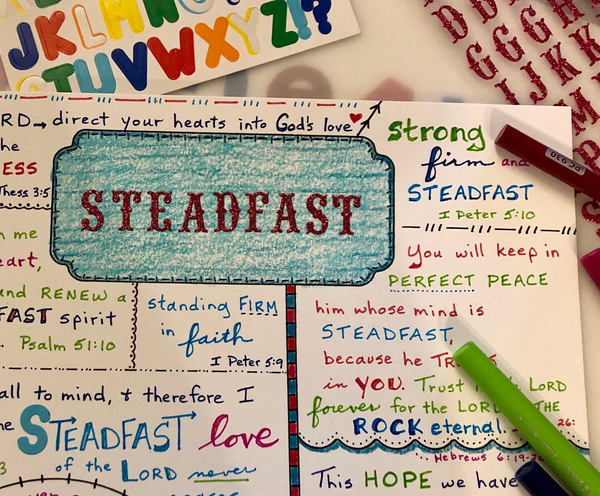 JKLMN
Z!?
TUVWXY
DDD
GGG
IJK
LL
RD → direct your hearts into God's love
he
ESS
Thess 3:5
STEADFAST
strong
firm and
STEADFAST
I Peter 5:10
n me
eart,
and RENEW a
FAST spirit
Psalm 51:10
standing FIRM
in faith
I Peter 5:9
You will keep in
PERFECT PEACE
him whose mind is
STEADFAST,
because he
in YOU. Trust LORD
forever for the LORD THE
ROCK eternal. 26:
all to mind, & therefore I
STEADFAST love
of the LORD never
3
Hebrews 6:19
This HOPE we have